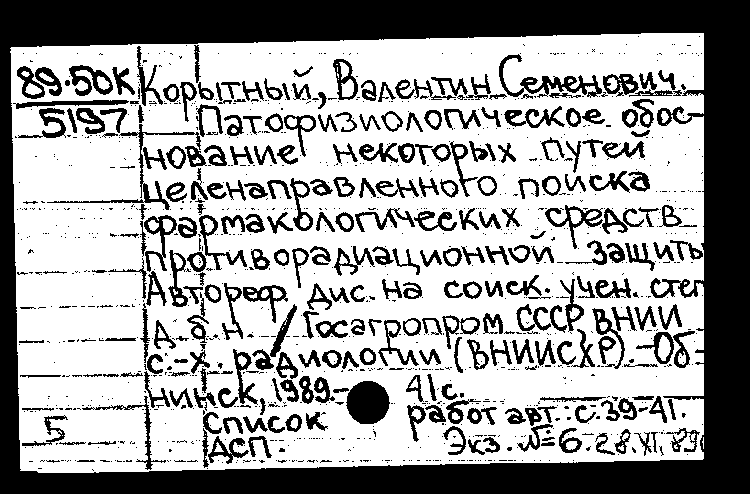 89-50К Корытный, Валентин Семенович.
5197 Патофизиологическое обос-
нование некоторых путей
целенаправленного поиска
фармакологических средств
противорадиационной защиты
Автореф. дис. на соиск. учен. степ
д. б. н. / Госагропром СССР, ВНИИ
с.-х. радиологии (ВНИИСХР).-Об-
нинск, 1989.- 41 с.
5 Список работ авт.: с. 39-41.
ДСП. Экз. №=6. 28.XI.89